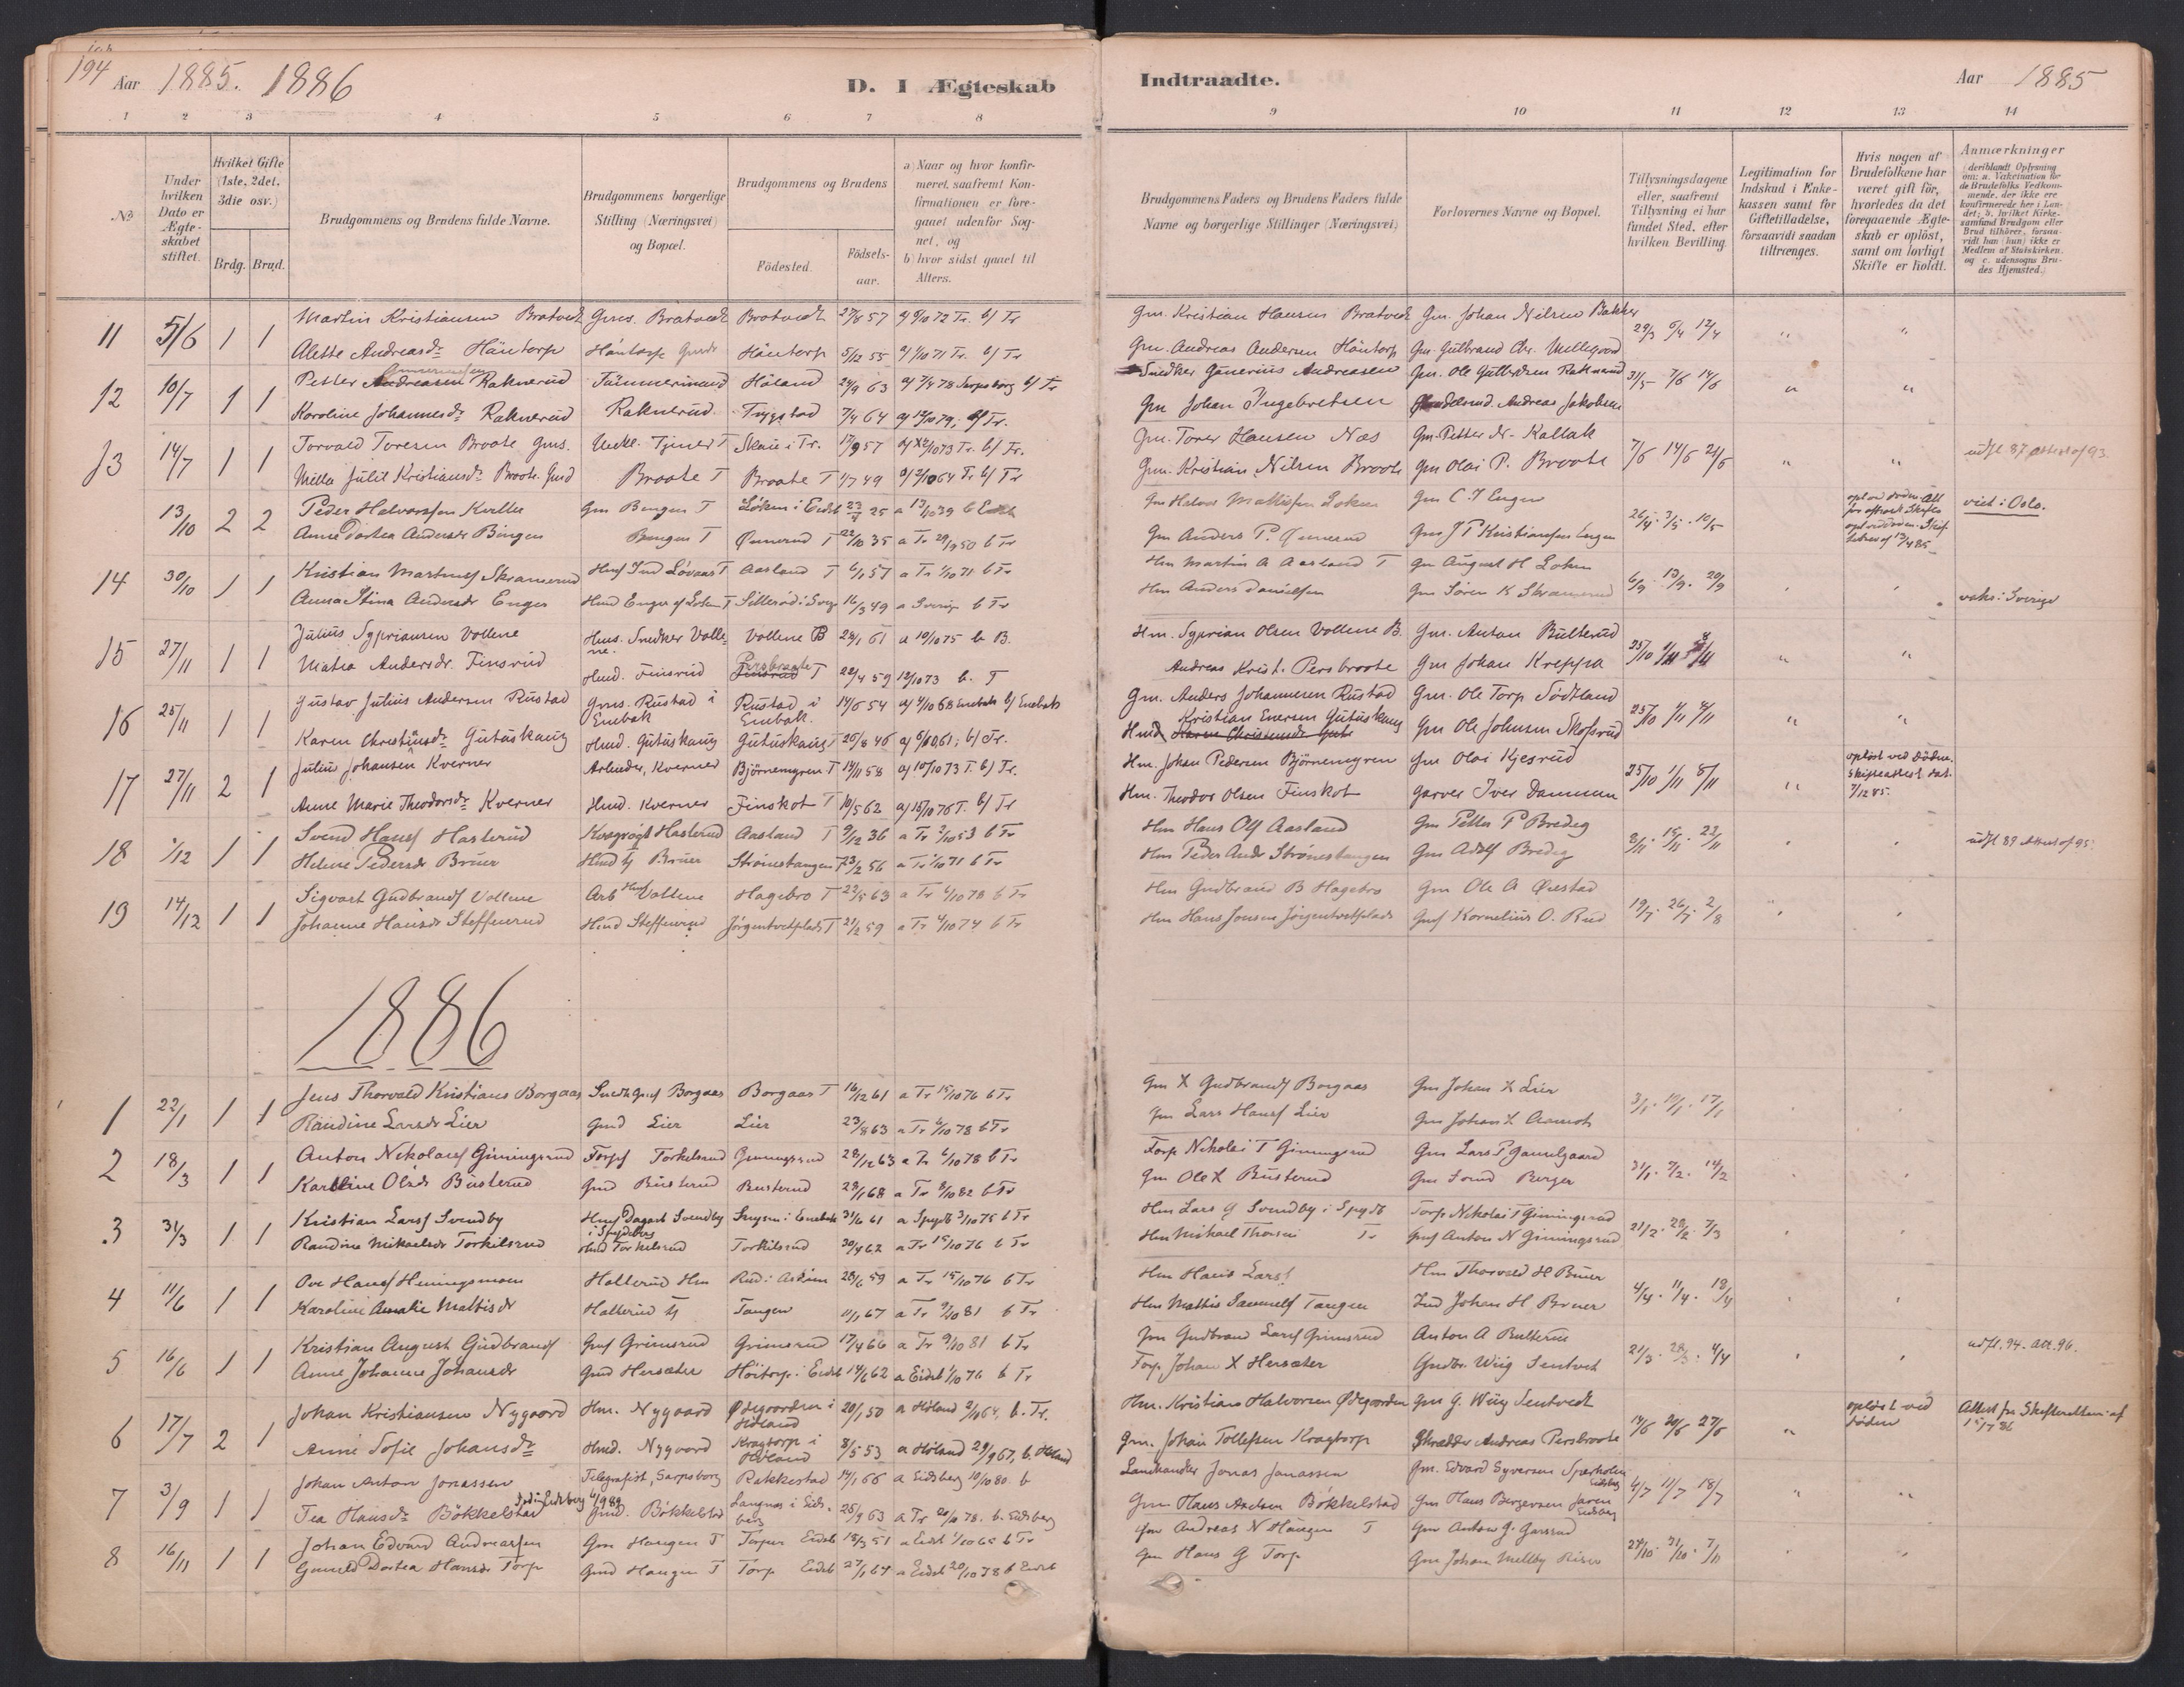 194 Aar 1885. 1886 D. I Ægteskab Indtraadte. Aar 1885
1 2 3 4 5 6 7 8 9 10 11 12 13 14
No
Under hvilken Dato er Ægteskabet stiftet.
Hvilket Gifte (1ste, 2det, 3die osv.)
Brdg. Brud.
Brudgommens og Brudens fulde Navne.
Brudgommens borgerlige Stilling (Næringsvei) og Bopæl.
Brudgommens og Brudens
Födested.
Födsels-aar.
a) Naar og hvor konfirmeret, saafremt Konfirmationen er foregaaet udenfor Sognet, og
b) hvor sidst gaaet til Alters.
Brudgommens Faders og Brudens Faders fulde Navne og borgerlige Stillinger (Næringsvei)
Forlovernes Navne og Bopæl.
Tillysningsdagene eller, saafremt Tillysning ei har fundet Sted, efter hvilken Bevilling.
Legitimation for Indskud i Enkekassen samt for Giftetilladelse, forsaavidt saadan tiltrænges.
Hvis nogen af Brudefolkene har været gift för, hvorledes da det foregaaende Ægteskab er oplöst, samt om lovligt Skifte er holdt.
Anmærkninger (deriblandt Oplysning om: a. Vakcination for de Brudefolks Vedkommende, der ikke ere konfirmerede her i Landet; b. hvilket Kirkesamfund Brudgom eller Brud tilhörer, forsaavidt han (hun) ikke er Medlem af Statskirken, og c. udensogns Brudes Hjemsted.)
11 5/6 1 1 Martin Kristiansen Bratvedt Gms. Bratvedt Bratvedt 27/8 57 a) 6/10 72 Tr. b) Tr Gm. Kristian Hansen Bratvedt Gm. Johan Nilsen Bakker 29/3 6/4 12/4 " "
Alette Andreasdr Häntorp Häntorp Gmdr Häntorp 5/12 55 a) 1/10 71 Tr. b) Tr Gm. Andreas Andersen Häntorp Gm. Gulbrand Chr. Mellegaard
12 10/7 1 1 Petter Andreasen Raknerud Tömmermand Höland 24/9 63 a) 7/4 78 Sarpsborg b) Tr Snedker Gunerius Andreasen Gm. Ole Gulbrdsen Raknerud 31/5 7/6 14/6 " "
Karoline Johannesdr Raknerud Raknerud Trygstad 7/4 64 a) 12/10 79, b) Tr. Gm Johan Ingebretsen Handelsmd. Andreas Jakobsen
13 14/7 1 1 Torvald Toresen Broote Gms. Tjener T 17/9 57 Tr. b) Tr. Gm. Torer Hansen Næs Gm. Petter N. Kallak 7/6 14/6 21/6 " " udfl 87 attest af 93.
Milla Julie Kristiansdr Broote. Gmd Broote T Broote T 1/7 49 a) 2/10 64 Tr b) Tr Gm. Kristian Nilsen Broote Gm Olai P. Broote
13/10 2 2 Peder Halvorssen Gm Bergen T Løken i Eidsb 23/4 25 a 13/10 39 b Eidsb Gm Halvor Mathisen Løken Gm C. J Enger 26/4. 3/5. 10/5 viet i Oslo.
Anne Dortea Andersdr Bingen Bergen T Ømerud T 22/10 35 a Tr 29/9 50 b Tr Gm Anders P. Ømerud Gm J P Kristiansen Enger
14 30/10 1 1 Kristian Martins Skramerud Hmf Ind Lövaas T Aasland T 6/1 57 a Tr 1/10 71 b Tr Hm Martin A Aasland T Gm August H Løken 6/9. 13/9. 20/9
Anna Stina Andersdr Enger Hmd Enger af Løken T Sillerød i Sverg 16/3 49 a Sverige b Tr Hm Anders Danielsen Gm Søren K Skramerud vaks: Sverige
15 27/11 1 1 Julius Sypriansen Vollene Hms. Snedker Volle- ne. Vollene B 28/1 61 a 10/10 75 b B. Hm. Syprian Olsen Vollene B. Gm. Anton Bulterud 25/10 1/11 8/11 " "
Matea Andersdr. Finsrud Hmd. Finsrud Persbraate Finsrud T 22/4 59 12/10 73 b. T Andreas Krist. Persbroote Gm Johan Kreppa
16 25/11 1 1 Gustav Julius Andersen Rustad Gms. Rustad i Enebak Rustad i Enebak. 14/5 54 a) 4/10 68 Enebak b) Enebak Gm. Anders Johannesen Rustad Gm. Ole Torp Södtland 25/10 1/11 8/11 " "
Karen Christiansdr Gutuskaug Hmd. Gutuskaug Gutuskaug T 25/8 46 a) 6/10 61; b) Tr. Hmd Kristian Evensen Gutuskaug Gm Ole Johnsen Skofsrud
17 27/11 2 1 Julius Johansen Kverner Arbeider, Kverner Björnemyren T 14/11 58 a) 10/10 73 T. b) Tr. Hm. Johan Pedersen Björnemyren Gm Olai Kjesrud 25/10 1/11 8/11 " oplöst ved döden. Skifteattest dat. 7/12 85.
Anne Marie Theodorsdr Kverner Hmd. Kverner Finskot T 10/5 62 a) 15/10 76 T. b) Tr Hm. Theodor Olsen Finskot Garver Iver Dammen
18 1/12 1 1 Svend Hansf Hasterud Hasterud Aasland T 9/12 36 a Tr 2/10 53 b Tr Hm Hans Ols Aasland Gm Petter P Bredeg 8/11. 15/11. 22/11 udfl 89 Attest af 95.
Helene Pedersdr Bruer Hmd Bruer Strönestangen T 23/2 56 a Tr 1/10 71 b Tr Hm Peder Andr Strönestangen Gm Adolf Bredeg
19 14/12 1 1 Sigvart Gudbrandf Vollene Arb Hmf Vollene Hagebro T 22/5 63 a Tr 6/10 78 b Tr Hm Gudbrand B Hagebro Gm Ole A Ørestad 19/7. 26/7. 2/8
Johanne Hansdr Steffenrud Hmd Steffenrud Jörgentvetplads T 21/2 59 a Tr 4/10 74 b Tr Hm Hans Jensen Jörgentvetplads Gmf Kornelius O. Rud
1886
1 22/1 1 1 Jens Thorvald Kristians Borgaas Snedk Gmf Borgaas Borgaas T 16/12 61 a Tr 15/10 76 b Tr Gm K Gudbrandf Borgaas Gm Johan K Lier 3/1. 10/1. 17/1
Randine Larsdr Lier Gmd Lier Lier 23/8 63 a Tr 6/10 78 b Tr Gm Lars Hansf Lier Gm Johan K Aamot
2 18/3 1 1 Anton Nikolaif Gimingsrud Torpf Torkelsrud Gimingsrud 28/12 63 a Tr 6/10 78 b Tr Torp Nikolai T Gimingsrud Gm Lars P Gamelgaard 31/1. 7/2. 14/2
Karoline Olsdr Busterud Gmd Busterud Busterud 28/1 68 a Tr 8/10 82 b Tr Gm Ole K Busterud Gm Berger
3 31/3 1 1 Kristian Larsf Svendby Hmf Dagarb Svendby i Spydeberg i Enebak 31/6 61 a Spydb 3/10 75 b Tr Hm Lars G Svendby i Spydb Torp Nikolai T Gimingsrud 21/2. 28/2. 7/3
Randine Mikaelsdr Torkilsrud Hmd Torkilsrud Torkilsrud 30/4 62 a Tr 15/10 76 b Tr Hm Mikael Thorsen Tr Gmf Anton N Gimingsrud
4 11/6 1 1 Ove Hansf Heningsmoen Hallerud Hm Rud i Askim 28/6 59 a Tr 15/10 76 b Tr Hm Hans Larsf Hm Thorvald H Bruer 4/4. 11/4. 18/4
Karoline Amalie Mattisdr Hallerud Tangen 11/1 67 a Tr 9/10 81 b Tr Hm Mattis Samuelf Tangen Ind Johan H Bruer
5 16/6 1 1 Kristian August Gudbrandf Gmf Grimsrud Grimsrud 17/4 66 a Tr 9/10 81 b Tr Gm Gudbrand Larsf Grimsrud Anton A Bulterud 21/3. 28/3. 4/4 udfl. 94. att. 96.
Anne Johanne Johansdr Gmd Hersæter Höitorp i Eidsb 14/6 62 a Eidsb 1/10 76 b Tr Torp Johan K Hersæter Gudbr. Wiig Sentvet
6 17/7 2 1 Johan Kristiansen Nygaard Hm. Nygaard Ødegaarden i Höland 20/1 50 a Höland 2/10 64, b. Tr. Hm. Kristian Halvorsen Ødegaarden Gm G. Wiig Sentvedt 13/6 20/6 27/6 " oplöst ved döden Attest fra Skifteretten af 15/7 86
Anne Sofie Johansdr Hmd. Nygaard Kragtorp i Höland 8/5 53 a Höland 29/9 67, b. Höland Gm. Johan Tollefsen Kragtorp Skrædder Andreas Persbroote
7 3/9 1 1 Johan Anton Jonassen Telegrafist, Sarpsborg Rakkestad 14/1 66 a Eidsberg 10/10 80. b Landhandler Jonas Jonassen Gm. Edvard Syversen Eidsberg 4/7 11/7 18/7 " "
Tea Hansdr Bökkelstad Gmd. Bökkelstad Langnæs i Eidsberg 25/9 63 a Tr 20/10 78. b. Eidsberg Gm Hans Axelsen Bökkelstad Gm Hans Bergersen Jaren Eidsberg
8 16/11 1 1 Johan Edvard Andreassen Gm Haugen T Torper Eidsb 18/3 51 a Eidsb 1/10 65 b Tr Gm Andreas N Haugen T Gm Anton G. Garsrud 24/10. 31/10. 7/11
Gunild Dortea Hansdr Torp Gmd Haugen T Torp Eidsb 27/1 64 a Eidsb 20/10 78 b Eidsb Gm Hans G Torp Gm Johan Melby